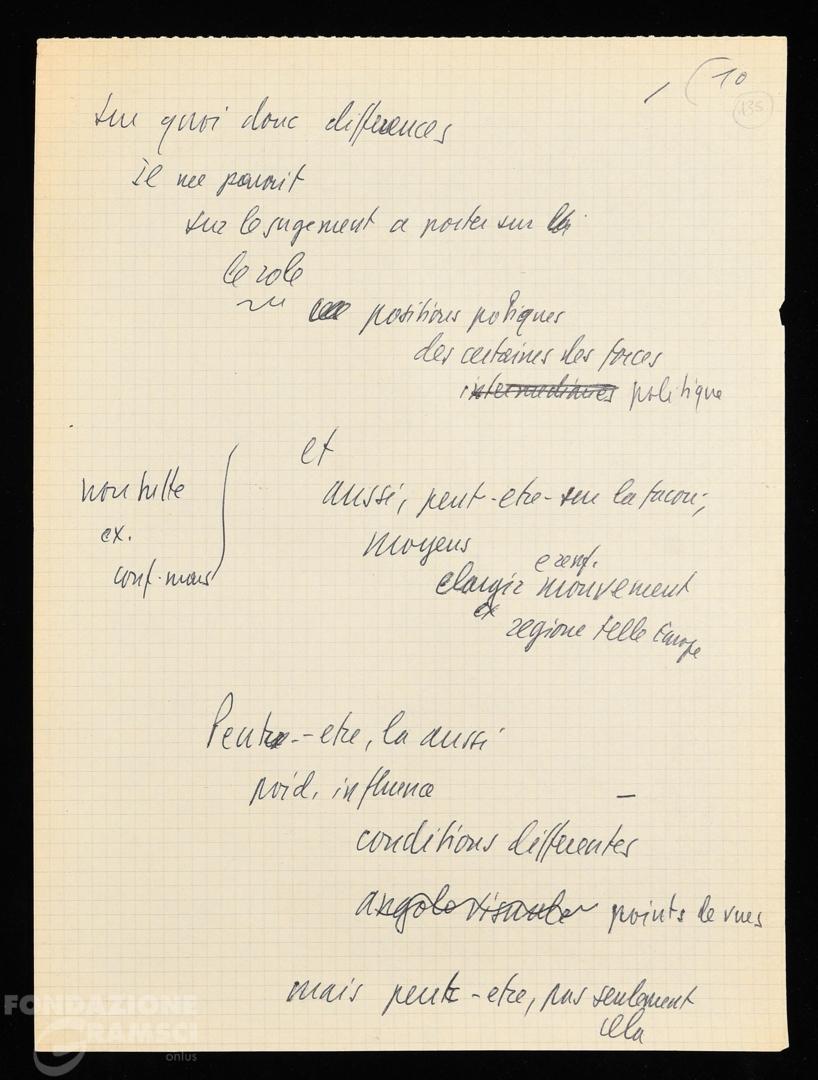 10
135
sur quoi donc differences
il me parait
sur le jugement a porter sur
le role
positions potiques
des certaines des forces
intermediaires politique
et
aussi, peut-etre-sur la facon,
moyens
exenf.
elargir mouvement
ex
regione telle Europe
non tutte
ex.
conf. mond
Peut-etre, la aussi
poid, influence
conditions differentes
angolo visante points de vues
mais peut-etre, pas seulement
cela
FONDAZIONE
GRAMSCI
onlus